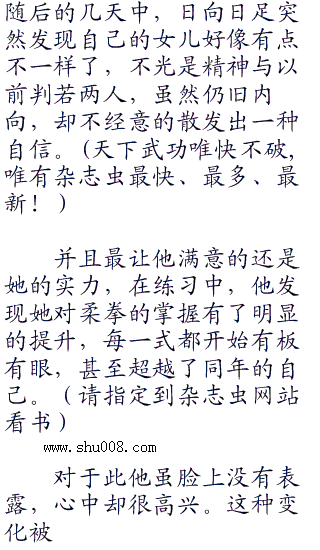 随后的几天中，日向日足突
然发现自己的女儿好像有点
不一样了，不光是精神与以
前判若两人，虽然仍旧内
向，却不经意的散发出一种
自信。(天下武功唯快不破,
唯有杂志虫最快、最多、最
新！)
并且最让他满意的还是
她的实力，在练习中，他发
现她对柔拳的掌握有了明显
的提升，每一式都开始有板
有眼，甚至超越了同年的自
己。（请指定到杂志虫网站
看书）
www.shu008.com
对于此他虽脸上没有表
露，心中却很高兴。这种变
化被